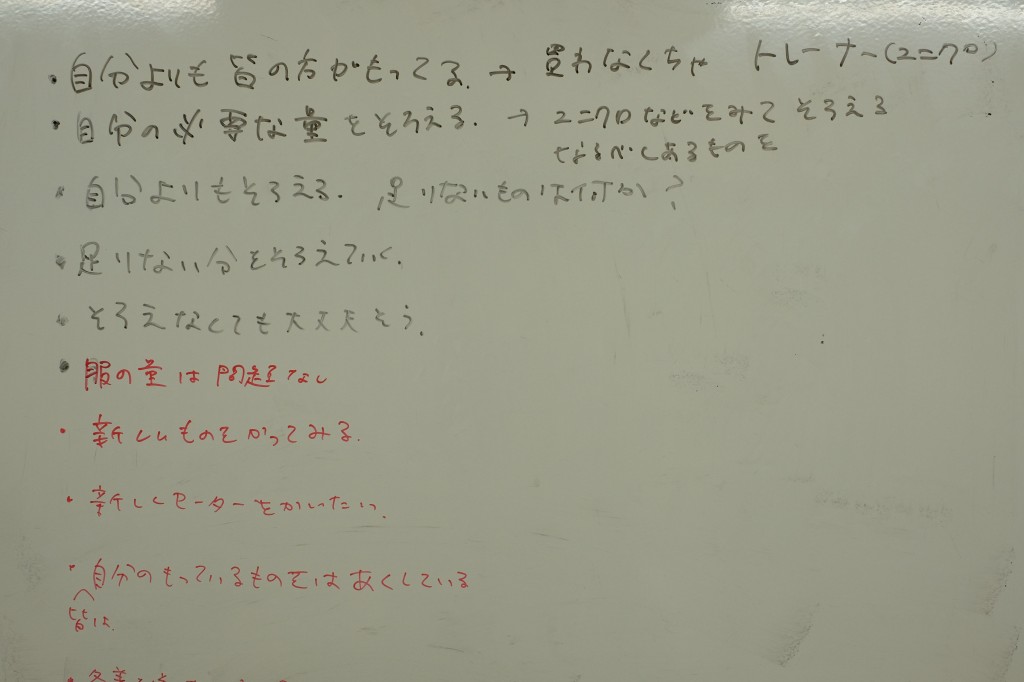 ・自分よりも皆の方がもってる。→ 買わなくちゃ トレーナー(ユニクロ)
・自分の必要な量をそろえる。→ ユニクロなどをみてそろえる
なるべくあるものを
・自分よりもそろえる。足りないものは何か?
・足りない分をそろえていく。
・そろえなくても大丈夫そう。
・服の量は問題なし
・新しいものをかってみる。
・新しくセーターをかいたい。
・自分のもっているものをはあくしている
皆は